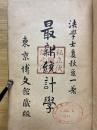 法學士夏秋亀一著
最新統計學
東京博文館藏版